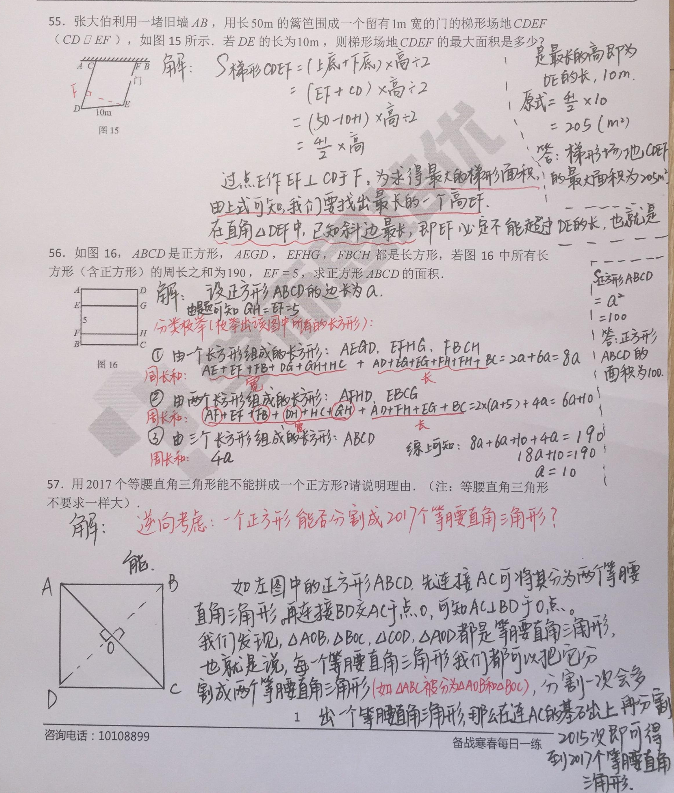 55. 张大伯利用一堵旧墙 AB ，用长 50m 的篱笆围成一个留有 1m 宽的门的梯形场地 CDEF
（CD▯EF），如图 15 所示．若 DE 的长为10m，则梯形场地 CDEF 的最大面积是多少?
A C F B
门
F
D E
10m
图 15
解: S梯形CDEF=(上底+下底)×高÷2
=(EF+CD)×高÷2
=(50-10+1)×高÷2
=41/2×高
过点E作EF⊥CD于F,为求得最大的梯形面积,
由上式可知,我们要找出最长的一个高EF.
在直角△DEF中,已知斜边最长,即EF必定不能超过DE的长,也就是
是最长的高即为
DE的长,10m.
原式=41/2×10
=205(m²)
答:梯形场地CDEF
的最大面积为205m²
56. 如图 16， ABCD 是正方形， AEGD ， EFHG ， FBCH 都是长方形，若图 16 中所有长
方形（含正方形）的周长之和为190， EF = 5，求正方形 ABCD 的面积．
A D
E G
5
F H
B C
图 16
解: 设正方形ABCD的边长为a.
由题可知GH=EF=5
分类枚举(枚举出该图中所有的长方形):
① 由一个长方形组成的长方形: AEGD、EFHG、FBCH
周长和: AE+EF+FB+DG+GH+HC + AD+EG+EG+FH+FH+BC=2a+6a=8a
宽 长
② 由两个长方形组成的长方形: AFHD、EBCG
周长和: AF+EF+FB+DH+HC+GH+AD+FH+EG+BC=2×(a+5)+4a=6a+10
宽 长
③ 由三个长方形组成的长方形: ABCD
周长和: 4a
综上可知: 8a+6a+10+4a=190
18a+10=190
a=10
S正方形ABCD
=a²
=100
答:正方形
ABCD的
面积为100.
57. 用 2017 个等腰直角三角形能不能拼成一个正方形?请说明理由．（注：等腰直角三角形
不要求一样大）．
解: 逆向考虑:一个正方形能否分割成2017个等腰直角三角形?
能.
A B
O
D C
如左图中的正方形ABCD.先连接AC可将其分为两个等腰
直角三角形。再连接BD交AC于点O,可知AC⊥BD于O点、。
我们发现,△AOB,△BOC,△COD,△AOD都是等腰直角三角形,
也就是说,每一个等腰直角三角形我们都可以把它分
割成两个等腰直角三角形(如△ABC被分为△AOB和△BOC),分割一次会多
出一个等腰直角三角形,那么在连AC的基础上再分割
2015次即可得
到2017个等腰直角
三角形.
1
咨询电话：10108899
备战寒春每日一练